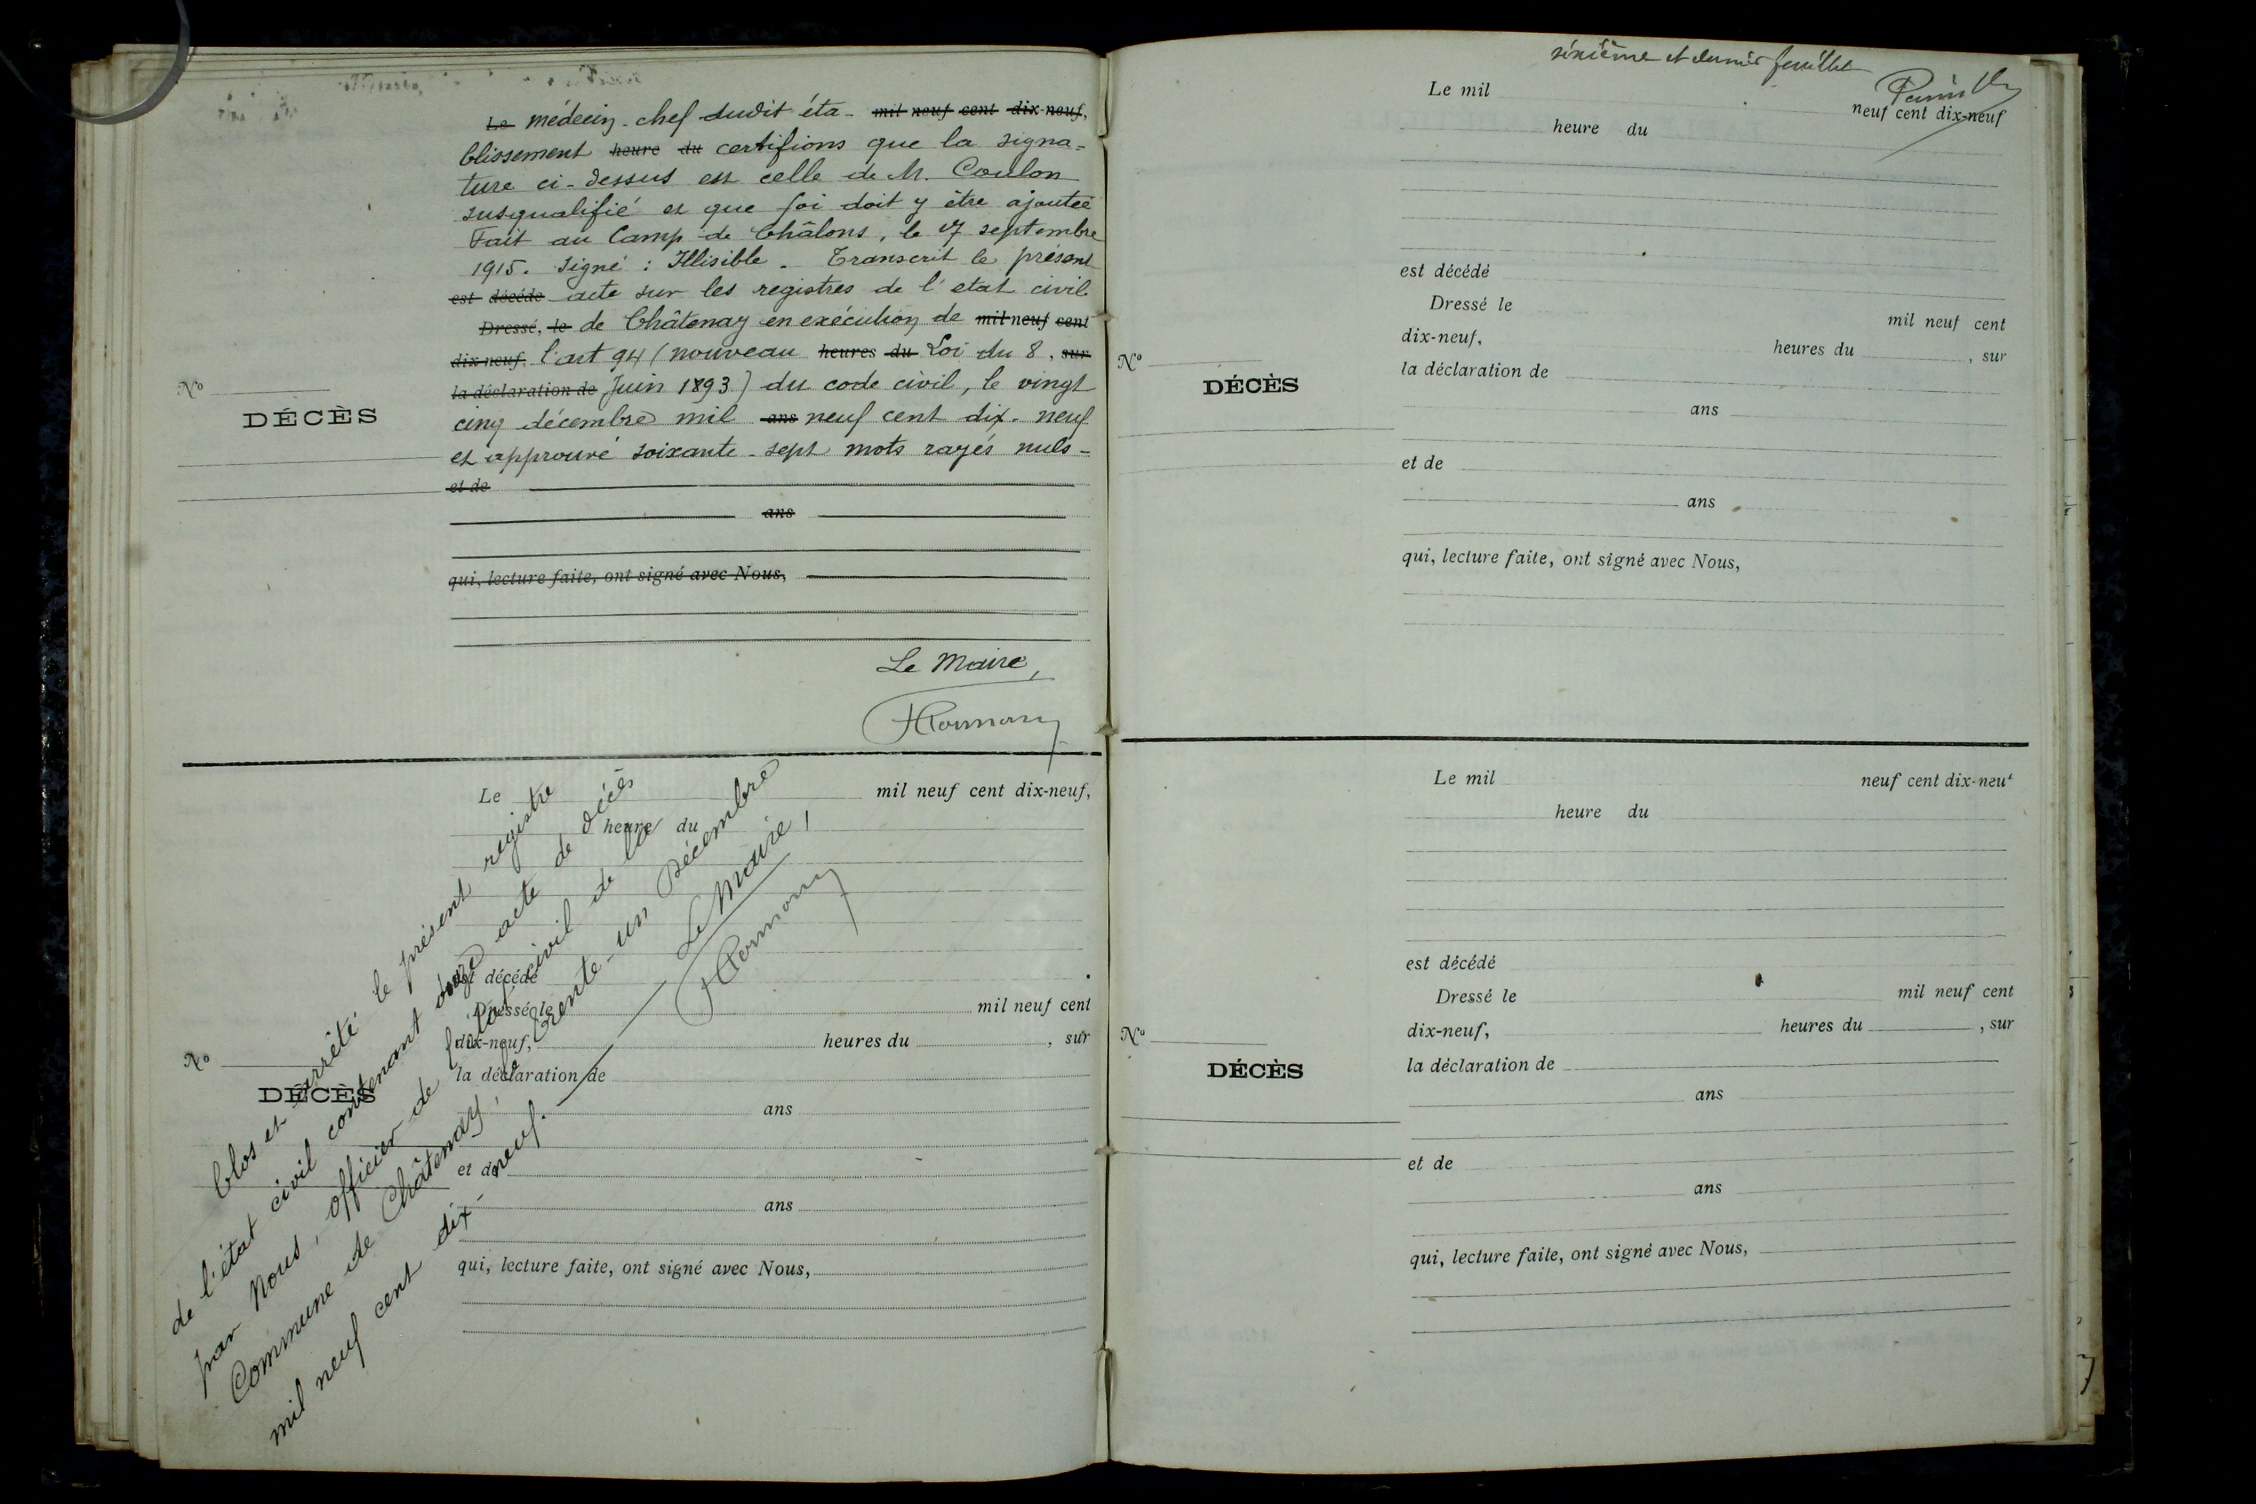 Le médecin-chef dudit éta- mil neuf cent dix-neuf,
blissement heure du certifions que la signa=
ture ci-dessus est celle de M. Coulon
susqualifié et que foi doit y être ajoutée
Fait au Camp de Châlons, le 17 septembre
1915. Signé : Illisible - Transcrit le présent
est décédé acte sur les registres de l'etat civil
Dressé, le de Châtenay en exécution de mil neuf cent
dix-neuf, l'art 94 (nouveau heures du Loi du 8, sur
la déclaration de Juin 1893) du code civil, le vingt
cinq décembre mil ans neuf cent dix-neuf
et approuvé soixante-sept mots rayés nuls-
et de
ans
qui, lecture faite, ont signé avec Nous,
Le Maire,
No
DÉCÈS
Le mil neuf cent dix-neuf,
heure du
est décédé
Dressé le mil neuf cent
dix-neuf, heures du , sur
la déclaration de
ans
et de
ans
qui, lecture faite, ont signé avec Nous,
No
DÉCÈS
Clos et arrêté le présent registre
de l'état civil contenant onze acte de décès
par Nous, officier de l'état civil de la
Commune de Châtenay, le trente-un Décembre
mil neuf cent dix-neuf.
Le Maire,
sixième et dernier feuillet
Le mil neuf cent dix-neuf
heure du
est décédé
Dressé le mil neuf cent
dix-neuf, heures du , sur
la déclaration de
ans
et de
ans
qui, lecture faite, ont signé avec Nous,
No
DÉCÈS
Le mil neuf cent dix-neuf
heure du
est décédé
Dressé le mil neuf cent
dix-neuf, heures du , sur
la déclaration de
ans
et de
ans
qui, lecture faite, ont signé avec Nous,
No
DÉCÈS